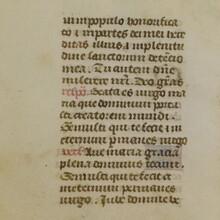 ui in populo honorifica
to et in partes dei mei here
ditas illius et in plenitu
dine sanctorum detencio
mea. Tu autem dñe
miserere nrī. Deo grās
resp. Beata es uirgo ma
ria que dominum porta
sti creatorem mundi.
Genuisti qui te fecit et in
eternum permanes uirgo
vers. Aue maria gracia
plena dominus tecum.
Genuisti qui te fecit et
ineternum permanes
uirgo. Iube domine be